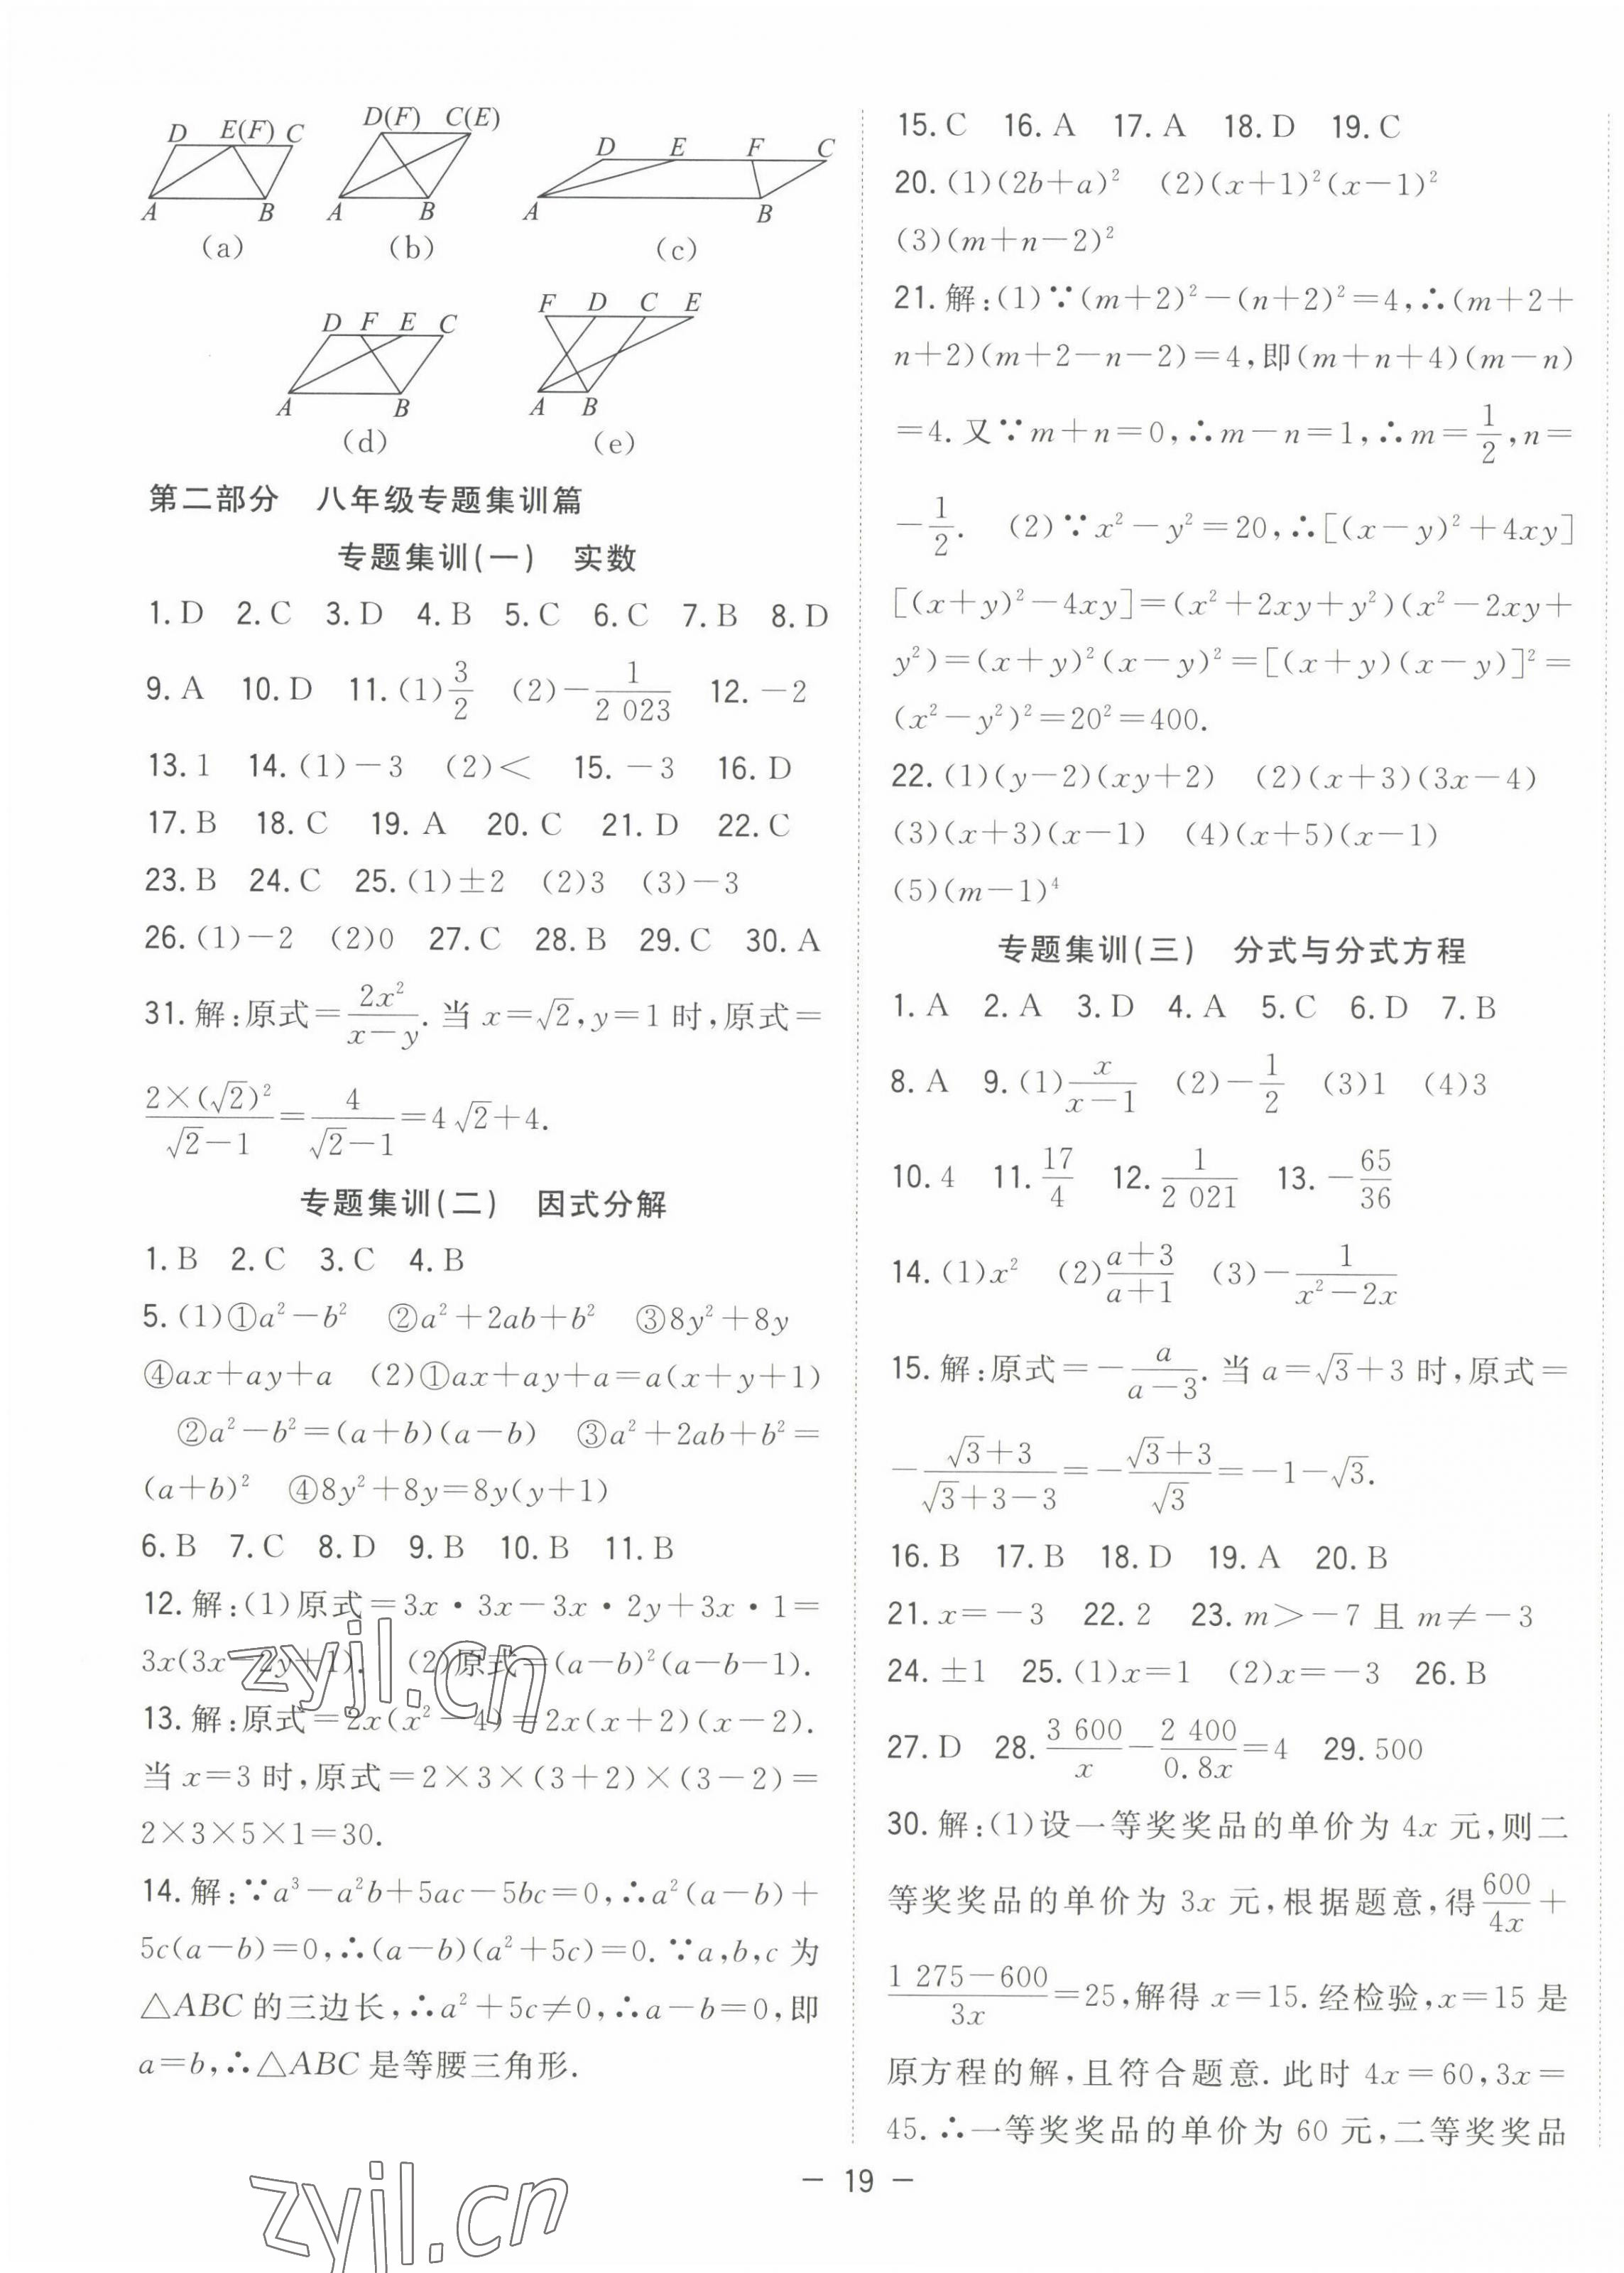 D E(F) C
A B
(a)
D(F) C(E)
A B
(b)
D E F C
A B
(c)
D F E C
A B
(d)
F D C E
A B
(e)
第二部分 八年级专题集训篇
专题集训(一) 实数
1. D 2. C 3. D 4. B 5. C 6. C 7. B 8. D
9. A 10. D 11. (1) 3/2 (2) −1/2 023 12. −2
13. 1 14. (1)−3 (2)< 15. −3 16. D
17. B 18. C 19. A 20. C 21. D 22. C
23. B 24. C 25. (1)±2 (2)3 (3)−3
26. (1)−2 (2)0 27. C 28. B 29. C 30. A
31. 解:原式=2x²/(x−y). 当 x=√2,y=1 时,原式=
2×(√2)²/(√2−1)=4/(√2−1)=4√2+4.
专题集训(二) 因式分解
1. B 2. C 3. C 4. B
5. (1)①a²−b² ②a²+2ab+b² ③8y²+8y
④ax+ay+a (2)①ax+ay+a=a(x+y+1)
②a²−b²=(a+b)(a−b) ③a²+2ab+b²=
(a+b)² ④8y²+8y=8y(y+1)
6. B 7. C 8. D 9. B 10. B 11. B
12. 解:(1)原式=3x·3x−3x·2y+3x·1=
3x(3x−2y+1). (2)原式=(a−b)²(a−b−1).
13. 解:原式=2x(x²−4)=2x(x+2)(x−2).
当 x=3 时,原式=2×3×(3+2)×(3−2)=
2×3×5×1=30.
14. 解:∵a³−a²b+5ac−5bc=0,∴a²(a−b)+
5c(a−b)=0,∴(a−b)(a²+5c)=0. ∵a,b,c 为
△ABC 的三边长,∴a²+5c≠0,∴a−b=0,即
a=b,∴△ABC 是等腰三角形.
15. C 16. A 17. A 18. D 19. C
20. (1)(2b+a)² (2)(x+1)²(x−1)²
(3)(m+n−2)²
21. 解:(1)∵(m+2)²−(n+2)²=4,∴(m+2+
n+2)(m+2−n−2)=4,即(m+n+4)(m−n)
=4. 又∵m+n=0,∴m−n=1,∴m=1/2,n=
−1/2. (2)∵x²−y²=20,∴[(x−y)²+4xy]
[(x+y)²−4xy]=(x²+2xy+y²)(x²−2xy+
y²)=(x+y)²(x−y)²=[(x+y)(x−y)]²=
(x²−y²)²=20²=400.
22. (1)(y−2)(xy+2) (2)(x+3)(3x−4)
(3)(x+3)(x−1) (4)(x+5)(x−1)
(5)(m−1)⁴
专题集训(三) 分式与分式方程
1. A 2. A 3. D 4. A 5. C 6. D 7. B
8. A 9. (1) x/(x−1) (2) −1/2 (3)1 (4)3
10. 4 11. 17/4 12. 1/2 021 13. −65/36
14. (1)x² (2) (a+3)/(a+1) (3) −1/(x²−2x)
15. 解:原式=−a/(a−3). 当 a=√3+3 时,原式=
−(√3+3)/(√3+3−3)=−(√3+3)/√3=−1−√3.
16. B 17. B 18. D 19. A 20. B
21. x=−3 22. 2 23. m>−7 且 m≠−3
24. ±1 25. (1)x=1 (2)x=−3 26. B
27. D 28. 3 600/x−2 400/0.8x=4 29. 500
30. 解:(1)设一等奖奖品的单价为 4x 元,则二
等奖奖品的单价为 3x 元,根据题意,得 600/4x+
(1 275−600)/3x=25,解得 x=15. 经检验,x=15 是
原方程的解,且符合题意. 此时 4x=60,3x=
45. ∴一等奖奖品的单价为 60 元,二等奖奖品
— 19 —
zyjl.cn
zyjl.cn